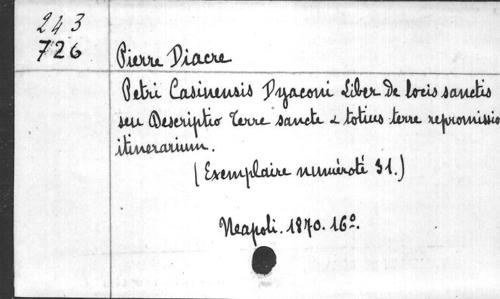 243
726
Pierre Diacre
Petri Casinensis Dyaconi Liber de locis sanctis
seu Descriptio Terre sancte & totius terre repromissio
itinerarium.
(Exemplaire numéroté 31.)
Neapoli. 1870. 16º.